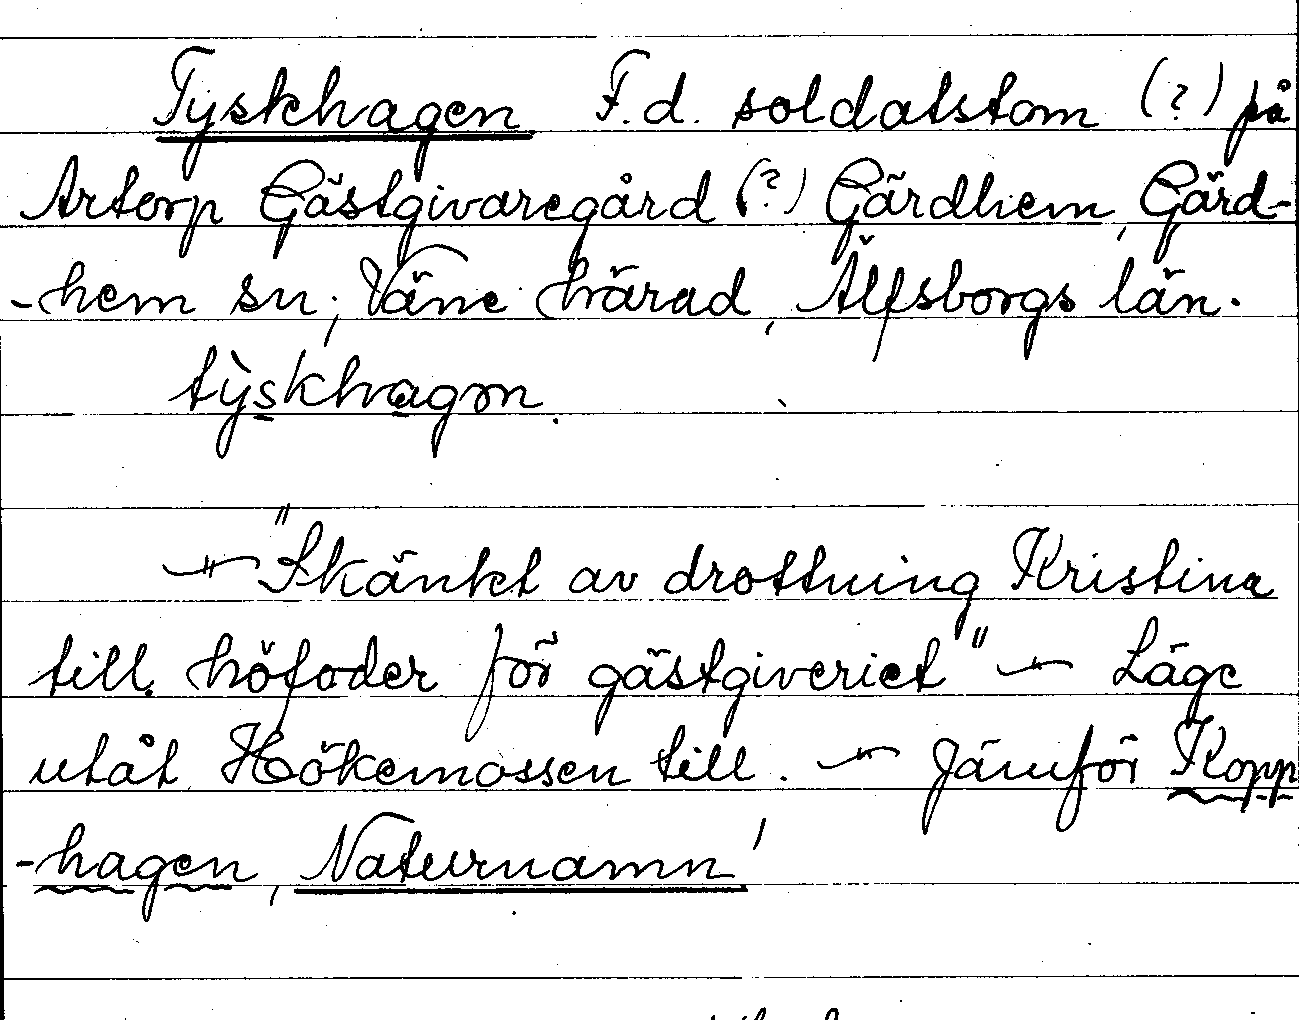 Tyskhagen F.d. soldatstom (?) på
Artorp Gästgivaregård (?) Gärdhem, Gärd-
-hem sn; Väne härad, Älfsborgs län.
tỳskhagɷn.
— "Skänkt av drottning Kristina
till höfoder för gästgiveriet" — Läge
utåt Hökemossen till. — Jämför Kopp
-hagen, Naturnamn!